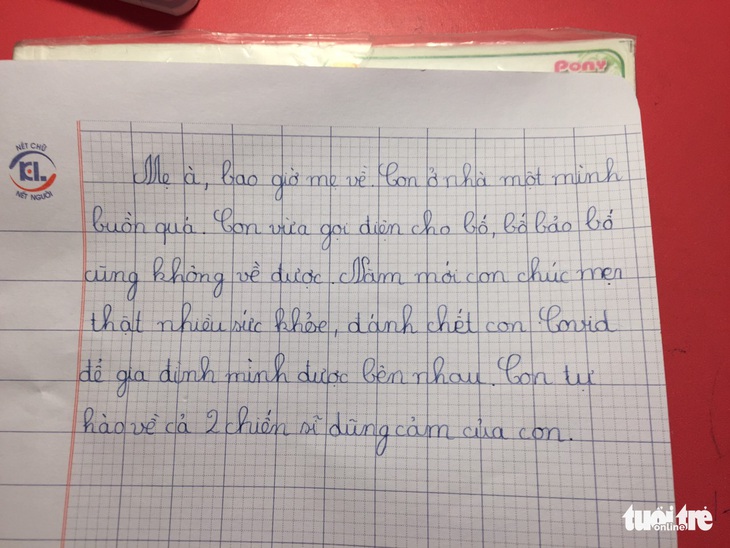 Pony
NÉT CHỮ
KL
NẾT NGƯỜI
Mẹ à, bao giờ mẹ về. Con ở nhà một mình
buồn quá. Con vừa gọi điện cho bố, bố bảo bố
cũng không về được. Năm mới con chúc mẹ
thật nhiều sức khỏe, đánh chết con Covid
để gia đình mình được bên nhau. Con tự
hào về cả 2 chiến sĩ dũng cảm của con.
tuổi trẻ
online